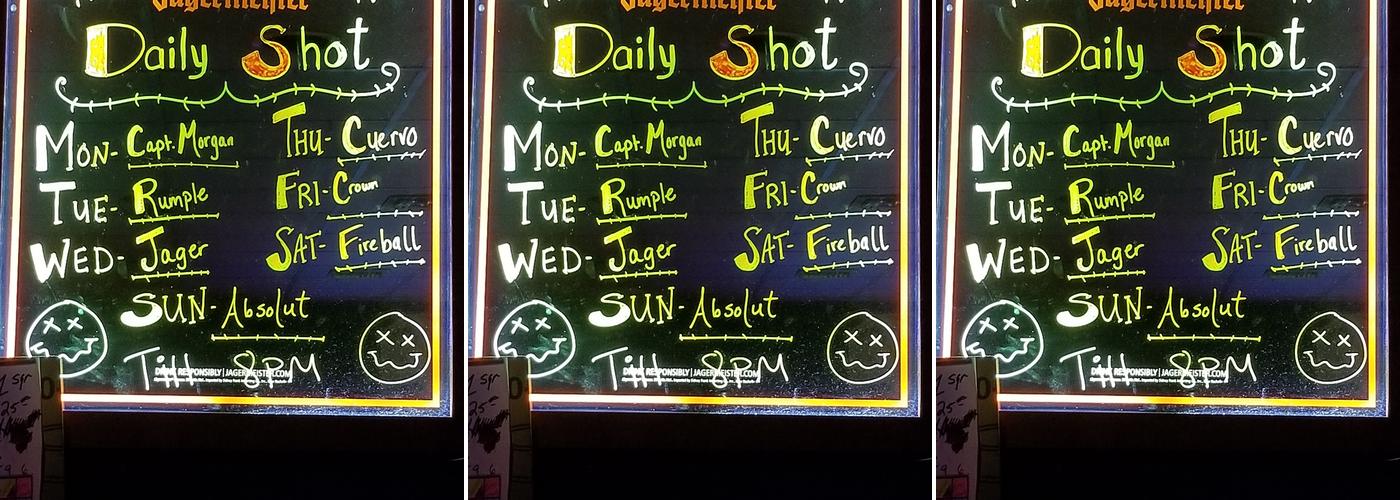 Jägermeister
Daily Shot
MON- Capt. Morgan THU- Cuervo
TUE- Rumple FRI- Crown
WED- Jager SAT- Fireball
SUN- Absolut
Till 8PM
DRINK RESPONSIBLY | JAGERMEISTER.COM
Jägermeister
Daily Shot
MON- Capt. Morgan THU- Cuervo
TUE- Rumple FRI- Crown
WED- Jager SAT- Fireball
SUN- Absolut
Till 8PM
DRINK RESPONSIBLY | JAGERMEISTER.COM
Jägermeister
Daily Shot
MON- Capt. Morgan THU- Cuervo
TUE- Rumple FRI- Crown
WED- Jager SAT- Fireball
SUN- Absolut
Till 8PM
DRINK RESPONSIBLY | JAGERMEISTER.COM